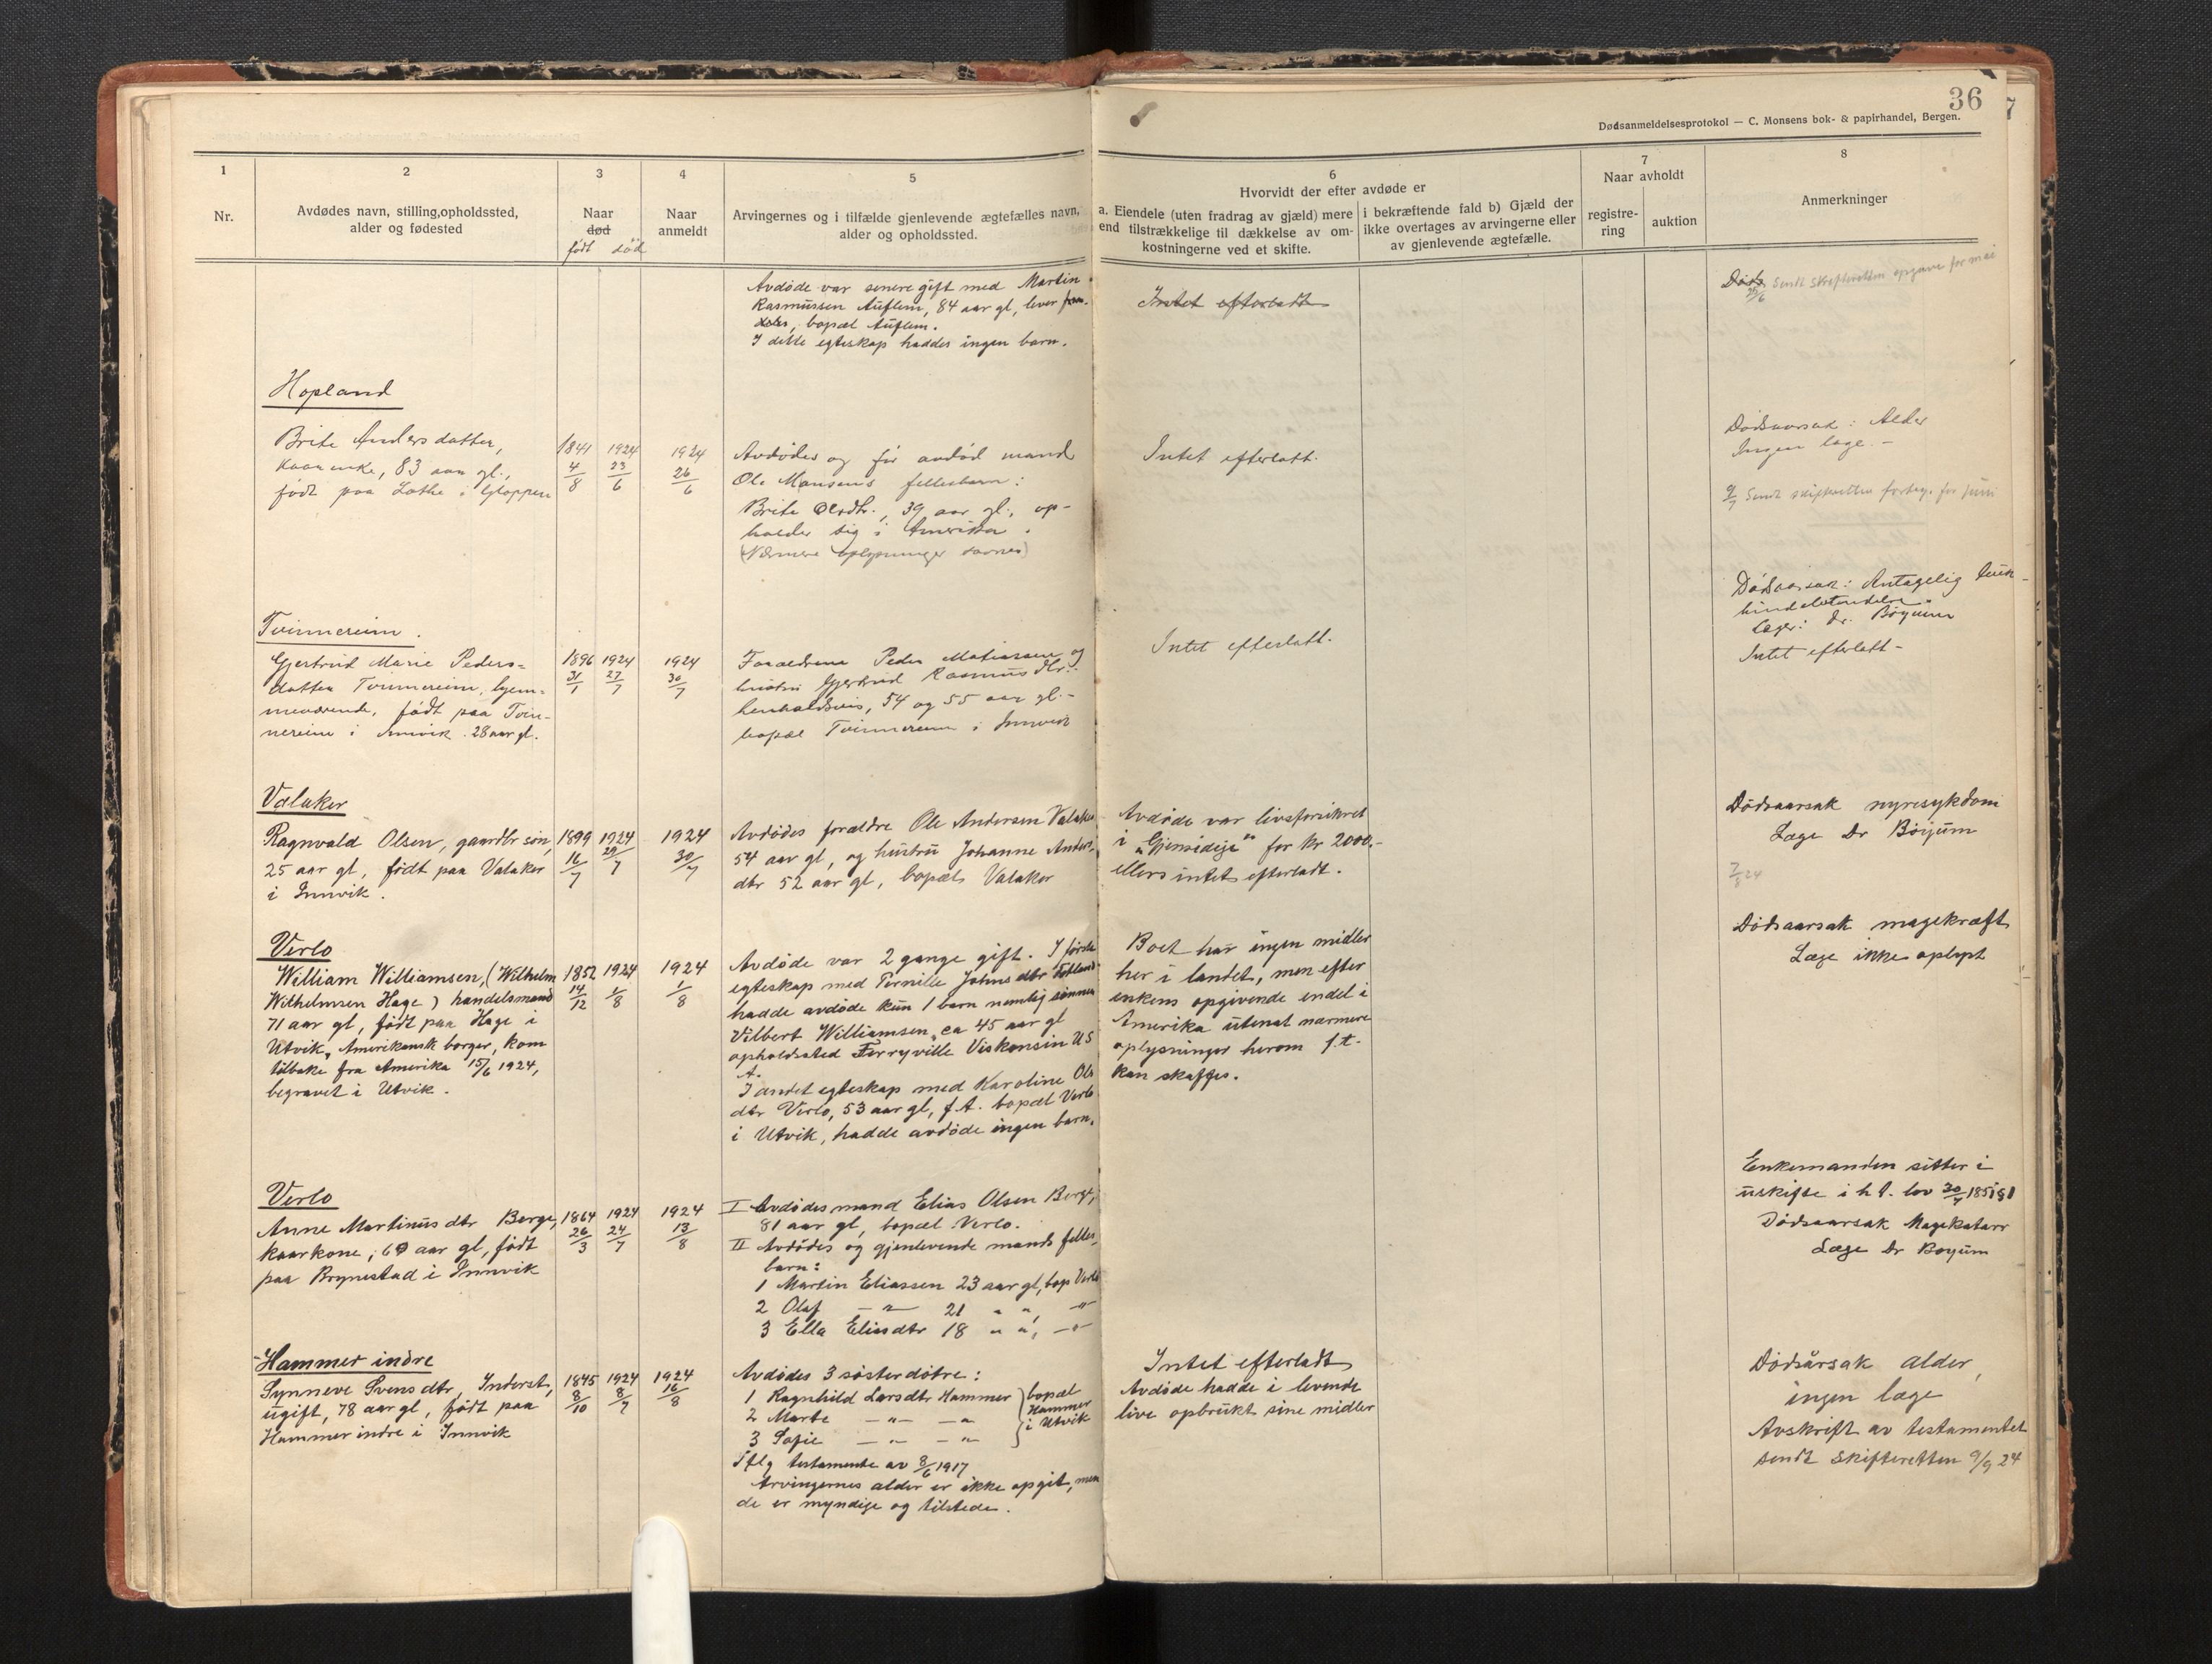 36
Dødsanmeldelsesprotokol — C. Monsens bok- & papirhandel, Bergen.
1
Nr.
2
Avdødes navn, stilling, opholdssted,
alder og fødested
3
Naar
død
født død
4
Naar
anmeldt
5
Arvingernes og i tilfælde gjenlevende ægtefælles navn,
alder og opholdssted.
6
Hvorvidt der efter avdøde er
a. Eiendele (uten fradrag av gjæld) mere
end tilstrækkelige til dækkelse av om-
kostningerne ved et skifte.
i bekræftende fald b) Gjæld der
ikke overtages av arvingerne eller
av gjenlevende ægtefælle.
7
Naar avholdt
registre-
ring
auktion
8
Anmerkninger
Avdøde var senere gift med Martin
Rasmussen Auflem, 84 aar gl, lever
bopæl Auflem.
I dette egteskap haddes ingen barn.
Intet efterladt
25/6 Sendt skifteretten opgave for mai
Hopland
Brite Andersdatter,
kaarenke, 83 aar gl.,
født paa Lothe i Gloppen
1841 4/8
1924 23/6
1924 26/6
Avdødes og før avdød mand
Ole Monsens fellesbarn:
Brite Olsdtr., 39 aar gl., op-
holder sig i Amerika.
(Nærmere oplysninger savnes)
Intet efterlatt.
Dødsaarsak: Alder
Ingen læge. -
9/7 Sendt skifteretten forteg. for juni
Tvinnereim.
Gjertrud Marie Peders-
datter Tvinnereim, hjem-
meværende, født paa Tvin-
nereim i Innvik. 28 aar gl.
1896 31/1
1924 27/7
1924 30/7
Forældrene Peder Matiassen og
hustru Gjertrud Rasmusdtr.
henholdsvis, 54 og 55 aar gl. -
bopæl Tvinnereim i Innvik
Intet efterlatt.
Dødsaarsak: Antagelig
Læge: dr. Bøyum
Intet efterlatt -
Valaker
Ragnvald Olsen, gaardbr søn,
25 aar gl, født paa Valaker
i Innvik.
1899 16/7
1924 29/7
1924 30/7
Avdødes forældre Ole Andersen Valaker
54 aar gl, og hustru Johanne Anders
dtr 52 aar gl, bopæl Valaker
Avdøde var livsforsikret
i "Gjensidige" for kr 2000,-
ellers intet efterladt.
Dødsaarsak nyresykdom
Læge Dr Böijum
7/8 24
Verlo
William Williamsen, (Wilhelm
Wilhelmsen Hage) handelsmand
71 aar gl, født paa Hage i
Utvik, Amerikansk borger, kom
tilbake fra Amerika 15/6 1924,
begravet i Utvik.
1852 14/12
1924 1/8
1924 1/8
Avdøde var 2 gange gift. I første
egteskap med Pernille Johnsdtr
hadde avdøde kun 1 barn nemlig sønnen
Vilbert Williamsen, ca 45 aar gl
opholdssted Ferryville Viskonsin U S
A.
I andet egteskap med Karoline Ols
dtr Verlo, 53 aar gl, f.t. bopæl Verlo
i Utvik, hadde avdøde ingen barn.
Boet har ingen midler
her i landet, men efter
enkens opgivende endel i
Amerika utenat nærmere
oplysninger herom f.t.
kan skaffes.
Dødsaarsak magekræft
Læge ikke oplyst
Verlo
Anne Martinusdtr Berge,
kaarkone, 60 aar gl, født
paa Brynestad i Innvik
1864 26/3
1924 24/7
1924 13/8
I Avdødes mand Elias Olsen Berge,
81 aar gl, bopæl Verlo.
II Avdødes og gjenlevende mands felles
barn:
1 Martin Eliassen 23 aar gl, bop Verlo
2 Olaf — " — 21 " ", — " —
3 Ella Eliasdtr 18 " ", — " —
Enkemanden sitter i
uskifte i h.t. lov 30/7 1851 §1
Dødsaarsak Magekatarr
Læge Dr Boyum
Hammer indre
Synneve Svensdtr, Inderst,
ugift, 78 aar gl, født paa
Hammer indre i Innvik
1845 8/10
1924 8/7
1924 16/8
Avdødes 3 søsterdøtre:
1 Ragnhild Larsdtr Hammer
2 Marte — " — — "
3 Sofie — " — — "
bopæl
Hammer
i Utvik
Iflg testamente av 8/6 1917
Arvingernes alder er ikke opgit, men
de er myndige og tilstede.
Intet efterladt
Avdøde hadde i levende
live opbrukt sine midler
Dødsårsak alder,
ingen læge
Avskrift av testamentet
sendt skifteretten 9/9 24